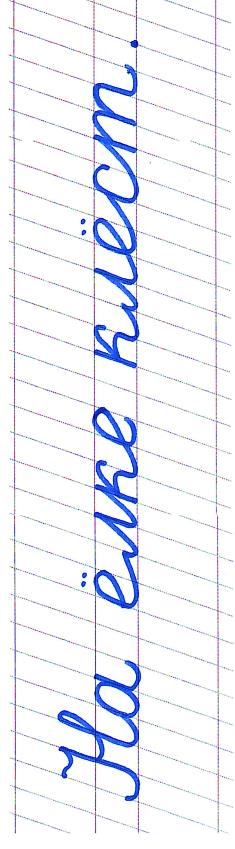 На ёлке клёст.